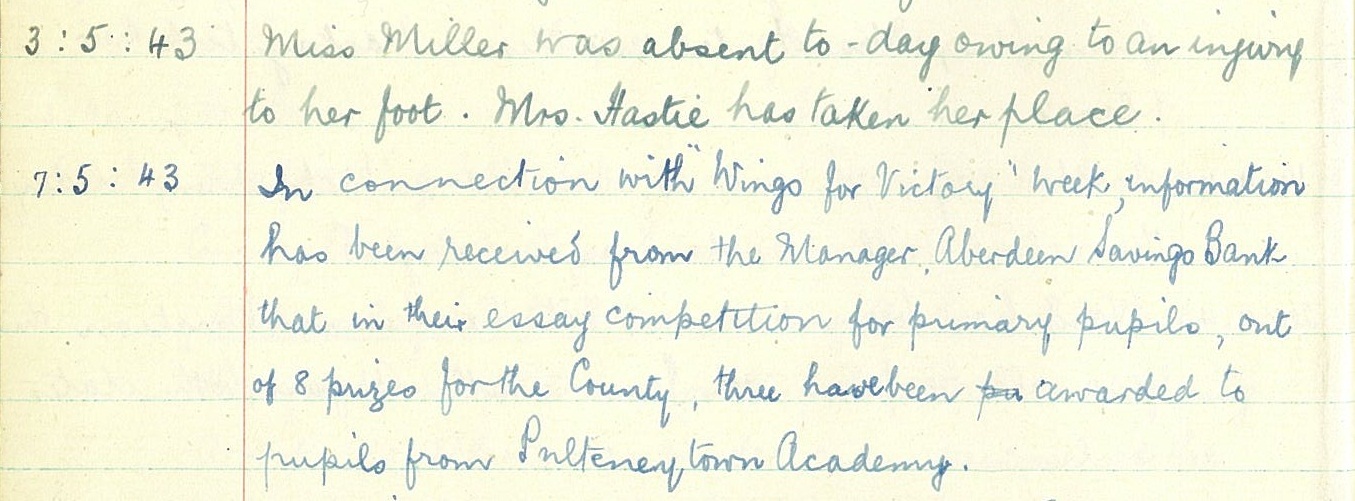 3:5:43 Miss Miller was absent to-day owing to an injury
to her foot. Mrs. Hastie has taken her place.
7:5:43 In connection with "Wings for Victory" Week, information
has been received from the Manager, Aberdeen Savings Bank
that in their essay competition for primary pupils, out
of 8 prizes for the County, three have been pu awarded to
pupils from Pulteneytown Academy.